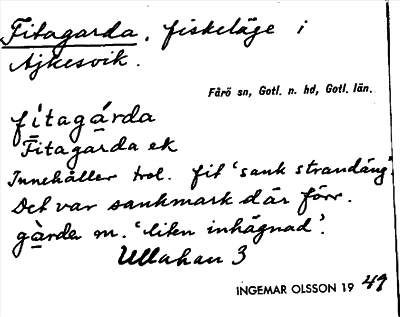 Fitagarda, fiskeläge i
Ajkesvik.
Fårö sn, Gotl. n. hd, Gotl. län.
fìtagá̱rda
Fitagarda ek
Innehåller trol. fit 'sank strandäng'.
Det var sankmark där förr.
gà̱rda m. 'liten inhägnad'.
Ullahau 3
INGEMAR OLSSON 19 49